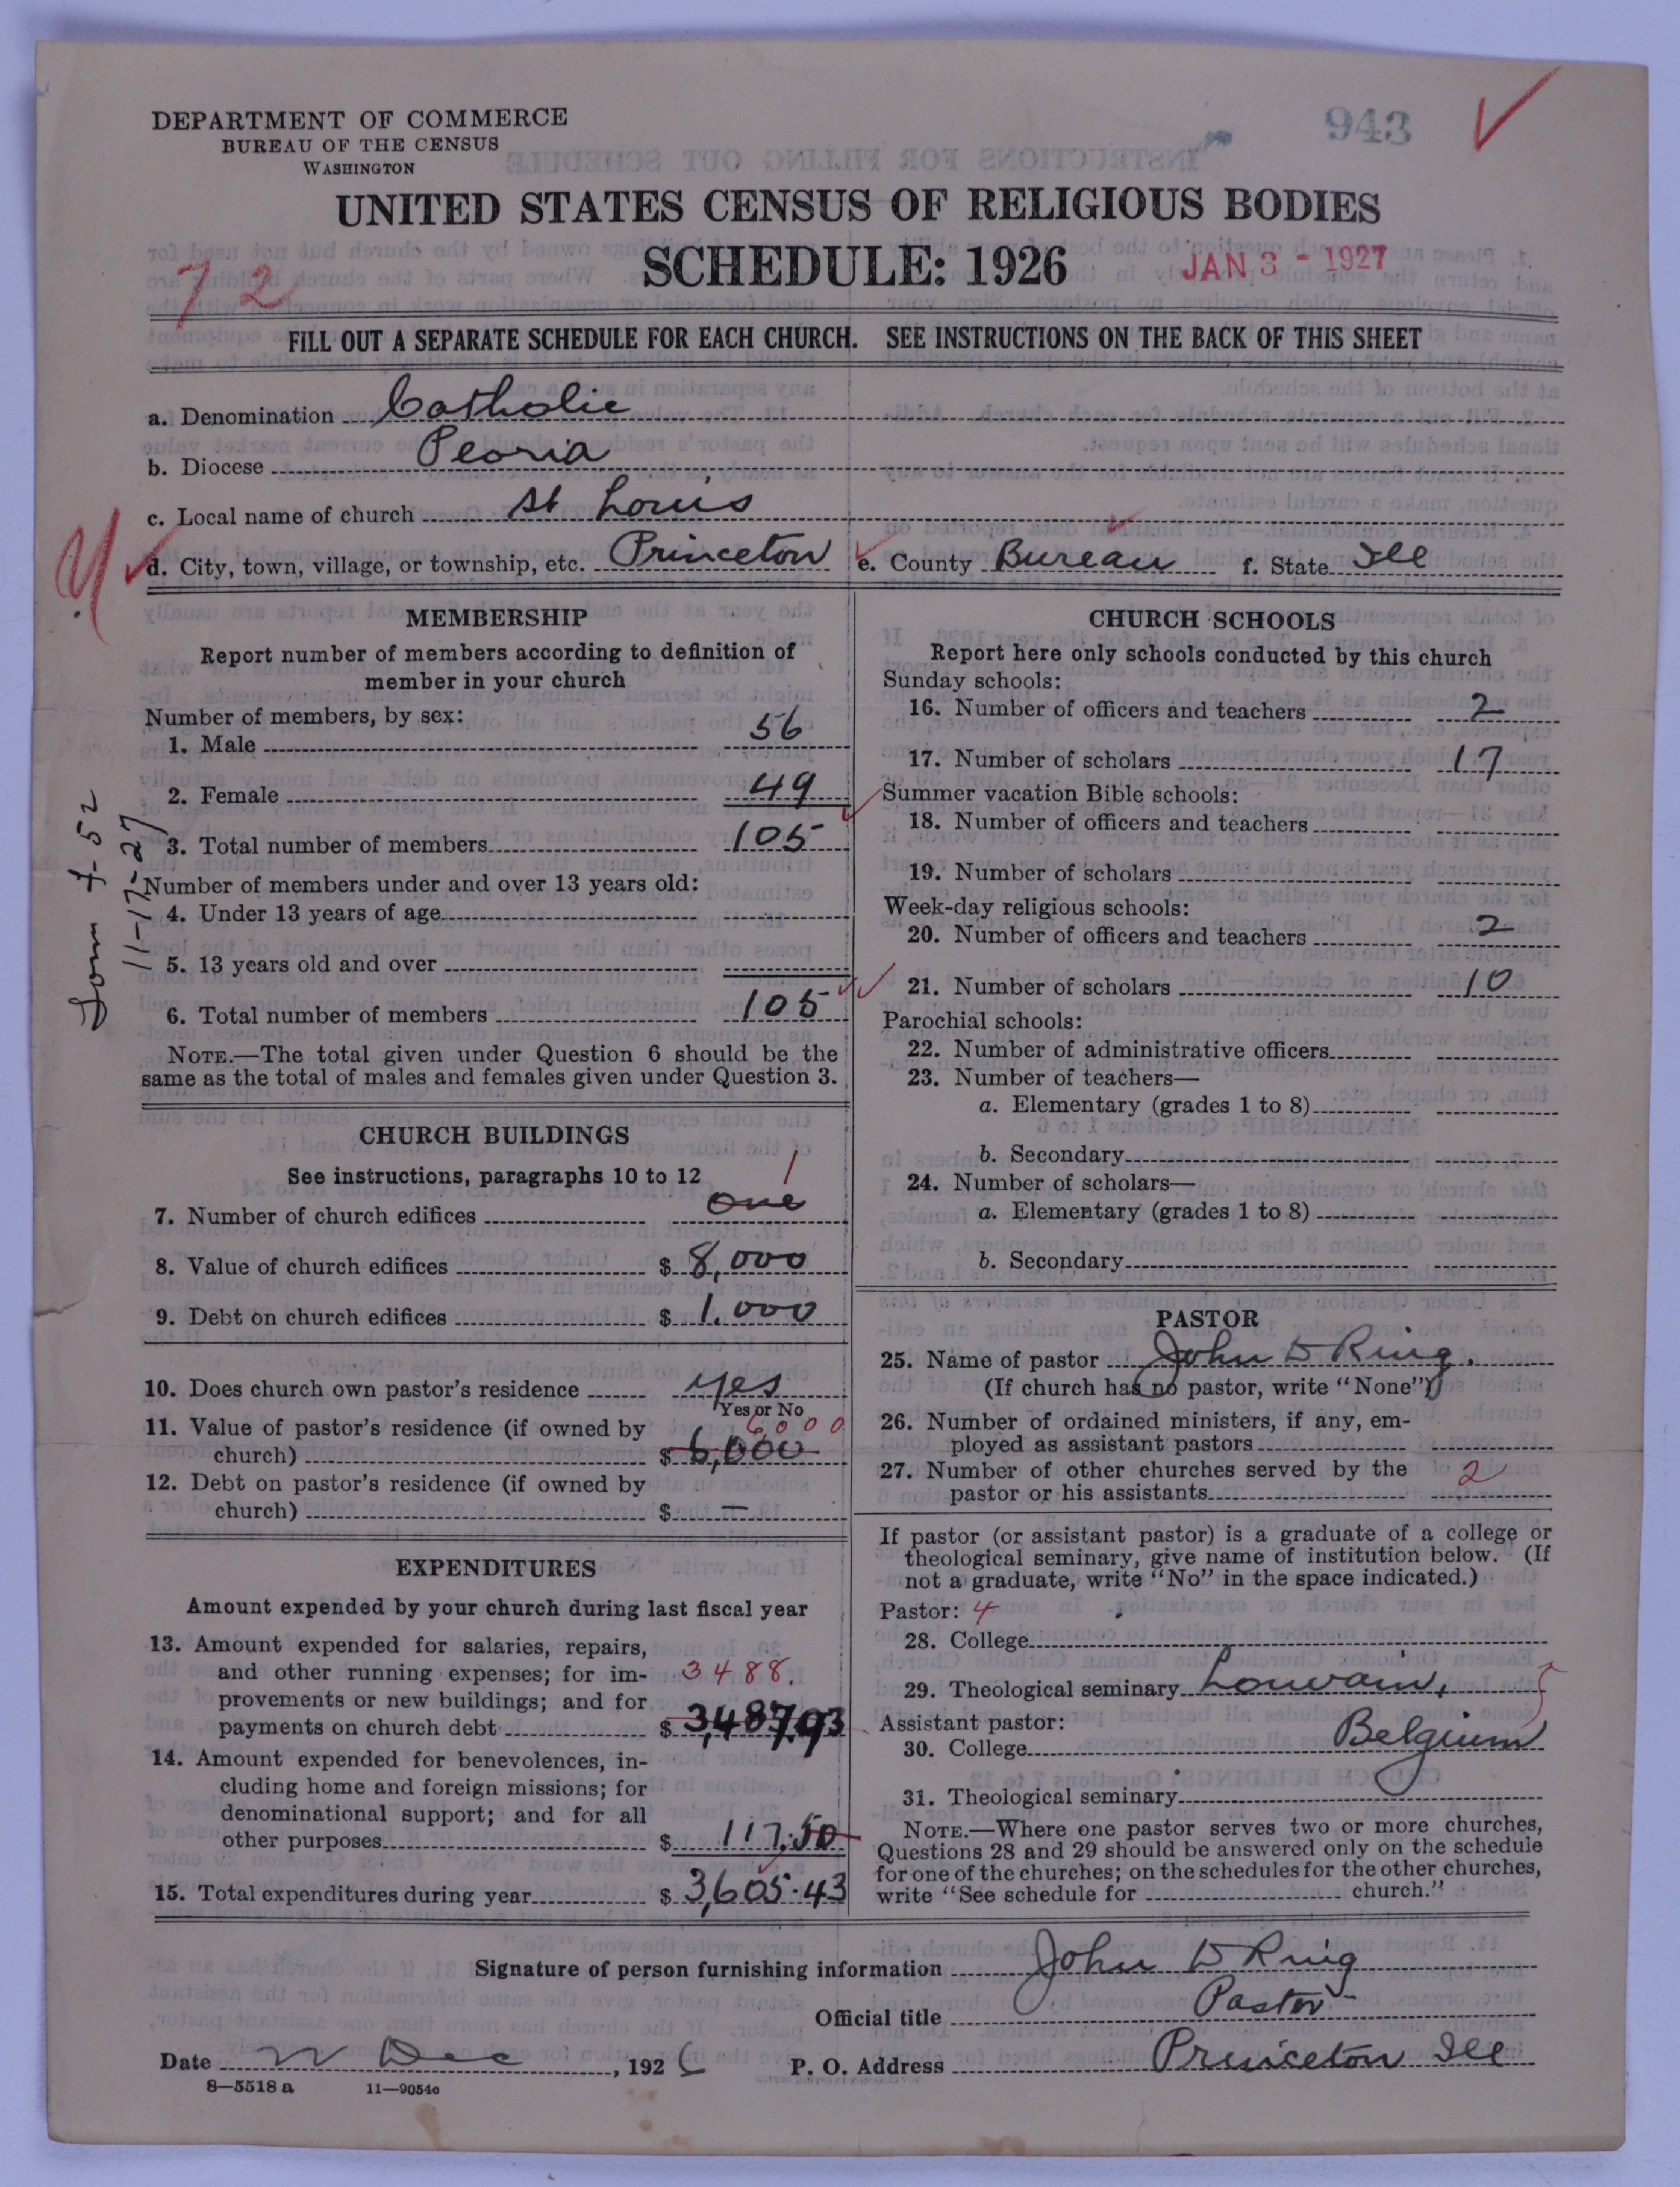 DEPARTMENT OF COMMERCE
BUREAU OF THE CENSUS
WASHINGTON
943
UNITED STATES CENSUS OF RELIGIOUS BODIES
SCHEDULE: 1926
JAN 3 - 1927
72
FILL OUT A SEPARATE SCHEDULE FOR EACH CHURCH. SEE INSTRUCTIONS ON THE BACK OF THIS SHEET
a. Denomination Catholic
b. Diocese Peoria
c. Local name of church St Louis
d. City, town, village, or township, etc. Princeton e. County Bureau f. State Ill
MEMBERSHIP
Report number of members according to definition of
member in your church
Number of members, by sex:
1. Male 56
2. Female 49
3. Total number of members 105
Number of members under and over 13 years old:
4. Under 13 years of age
5. 13 years old and over
6. Total number of members 105
NOTE.—The total given under Question 6 should be the
same as the total of males and females given under Question 3.
11-17-27
CHURCH BUILDINGS
See instructions, paragraphs 10 to 12
1
7. Number of church edifices one
8. Value of church edifices $ 8,000
9. Debt on church edifices $ 1.000
10. Does church own pastor's residence yes
Yes or No
11. Value of pastor's residence (if owned by 6000
church) $ 6,000
12. Debt on pastor's residence (if owned by
church) $ —
EXPENDITURES
Amount expended by your church during last fiscal year
13. Amount expended for salaries, repairs,
and other running expenses; for im- 3488.
provements or new buildings; and for
payments on church debt $ 3,487.93
14. Amount expended for benevolences, in-
cluding home and foreign missions; for
denominational support; and for all
other purposes $ 117.50
15. Total expenditures during year $ 3,605.43
CHURCH SCHOOLS
Report here only schools conducted by this church
Sunday schools:
16. Number of officers and teachers 2
17. Number of scholars 17
Summer vacation Bible schools:
18. Number of officers and teachers
19. Number of scholars
Week-day religious schools:
20. Number of officers and teachers 2
21. Number of scholars 10
Parochial schools:
22. Number of administrative officers
23. Number of teachers—
a. Elementary (grades 1 to 8)
b. Secondary
24. Number of scholars—
a. Elementary (grades 1 to 8)
b. Secondary
PASTOR
25. Name of pastor John D Ring.
(If church has no pastor, write "None")
26. Number of ordained ministers, if any, em-
ployed as assistant pastors
27. Number of other churches served by the 2
pastor or his assistants
If pastor (or assistant pastor) is a graduate of a college or
theological seminary, give name of institution below. (If
not a graduate, write "No" in the space indicated.)
Pastor: 4
28. College
29. Theological seminary Louvain,
Assistant pastor:
30. College Belgium
31. Theological seminary
NOTE.—Where one pastor serves two or more churches,
Questions 28 and 29 should be answered only on the schedule
for one of the churches; on the schedules for the other churches,
write "See schedule for church."
Signature of person furnishing information John D Ring
Official title Pastor
Date 22 Dec, 1926 P. O. Address Princeton Ill
8—5518 a 11—9054c